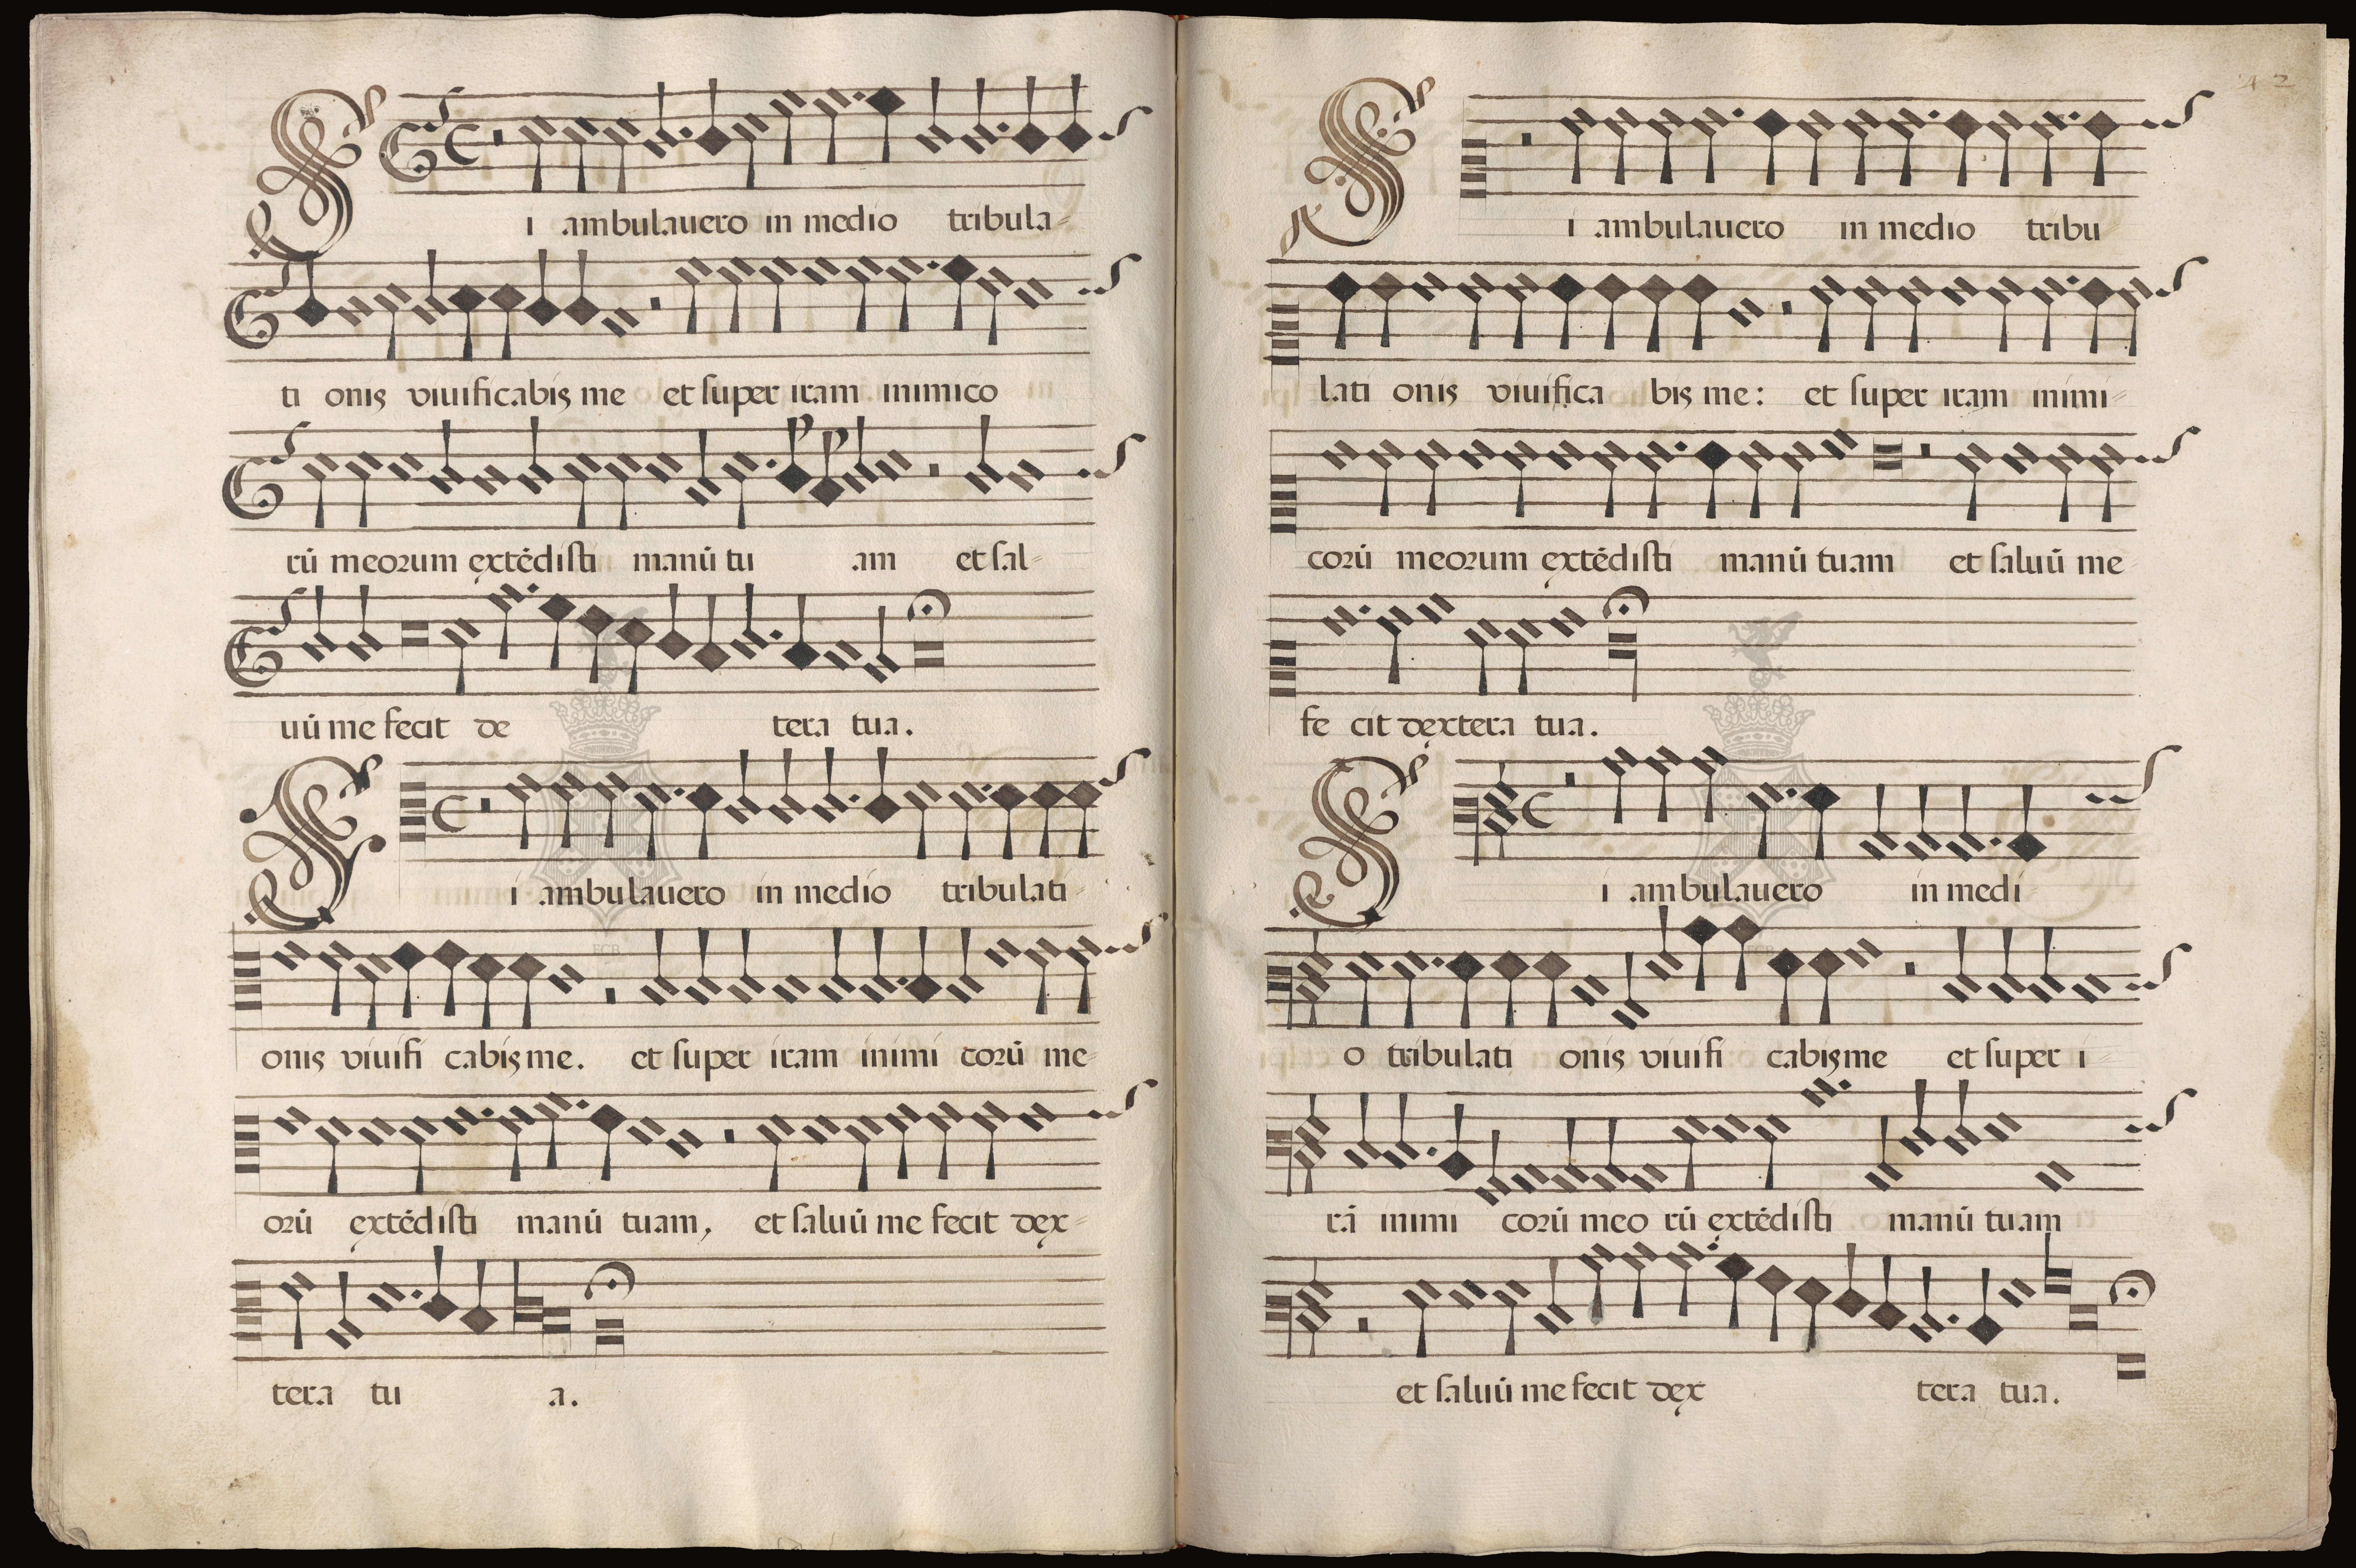 Si ambulauero in medio tribula-
ti onis viuificabis me et super iram inimico
rū meorum extēdisti manū tu am et sal-
uū me fecit de tera tua.
Si ambulauero in medio tribulati-
onis viuifi cabis me. et super iram inimi corū me-
orū extēdisti manū tuam, et saluū me fecit dex-
tera tu a.
42
Si ambulauero in medio tribu
lati onis viuifica bis me: et super iram inimi-
corū meorum extēdisti manū tuam et saluū me
fe cit dextera tua.
Si ambulauero in medi
o tribulati onis viuifi cabis me et super i-
rā inimi corū meo rū extēdisti manū tuam
et saluū me fecit dex tera tua.